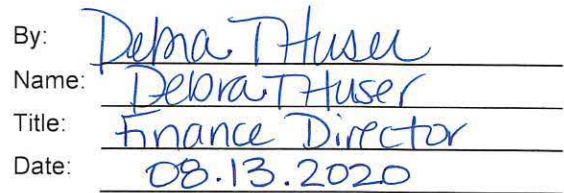 By: Debra T Huser
Name: Debra T Huser
Title: Finance Director
Date: 08.13.2020